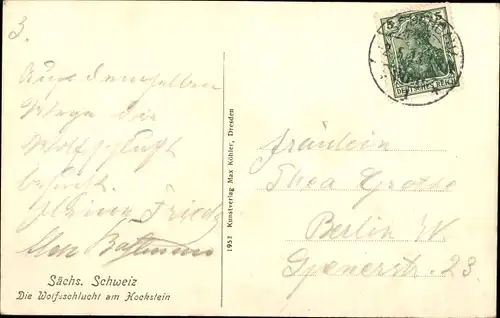 3.
Auf demselben
Wege die
Wolfschlucht
besucht.
Sächs. Schweiz
Die Wolfsschlucht am Hockstein
1953 Kunstverlag Max Köhler, Dresden
5 5
DEUTSCHES REICH
Fräulein
Thea Grothe
Berlin W.
23.